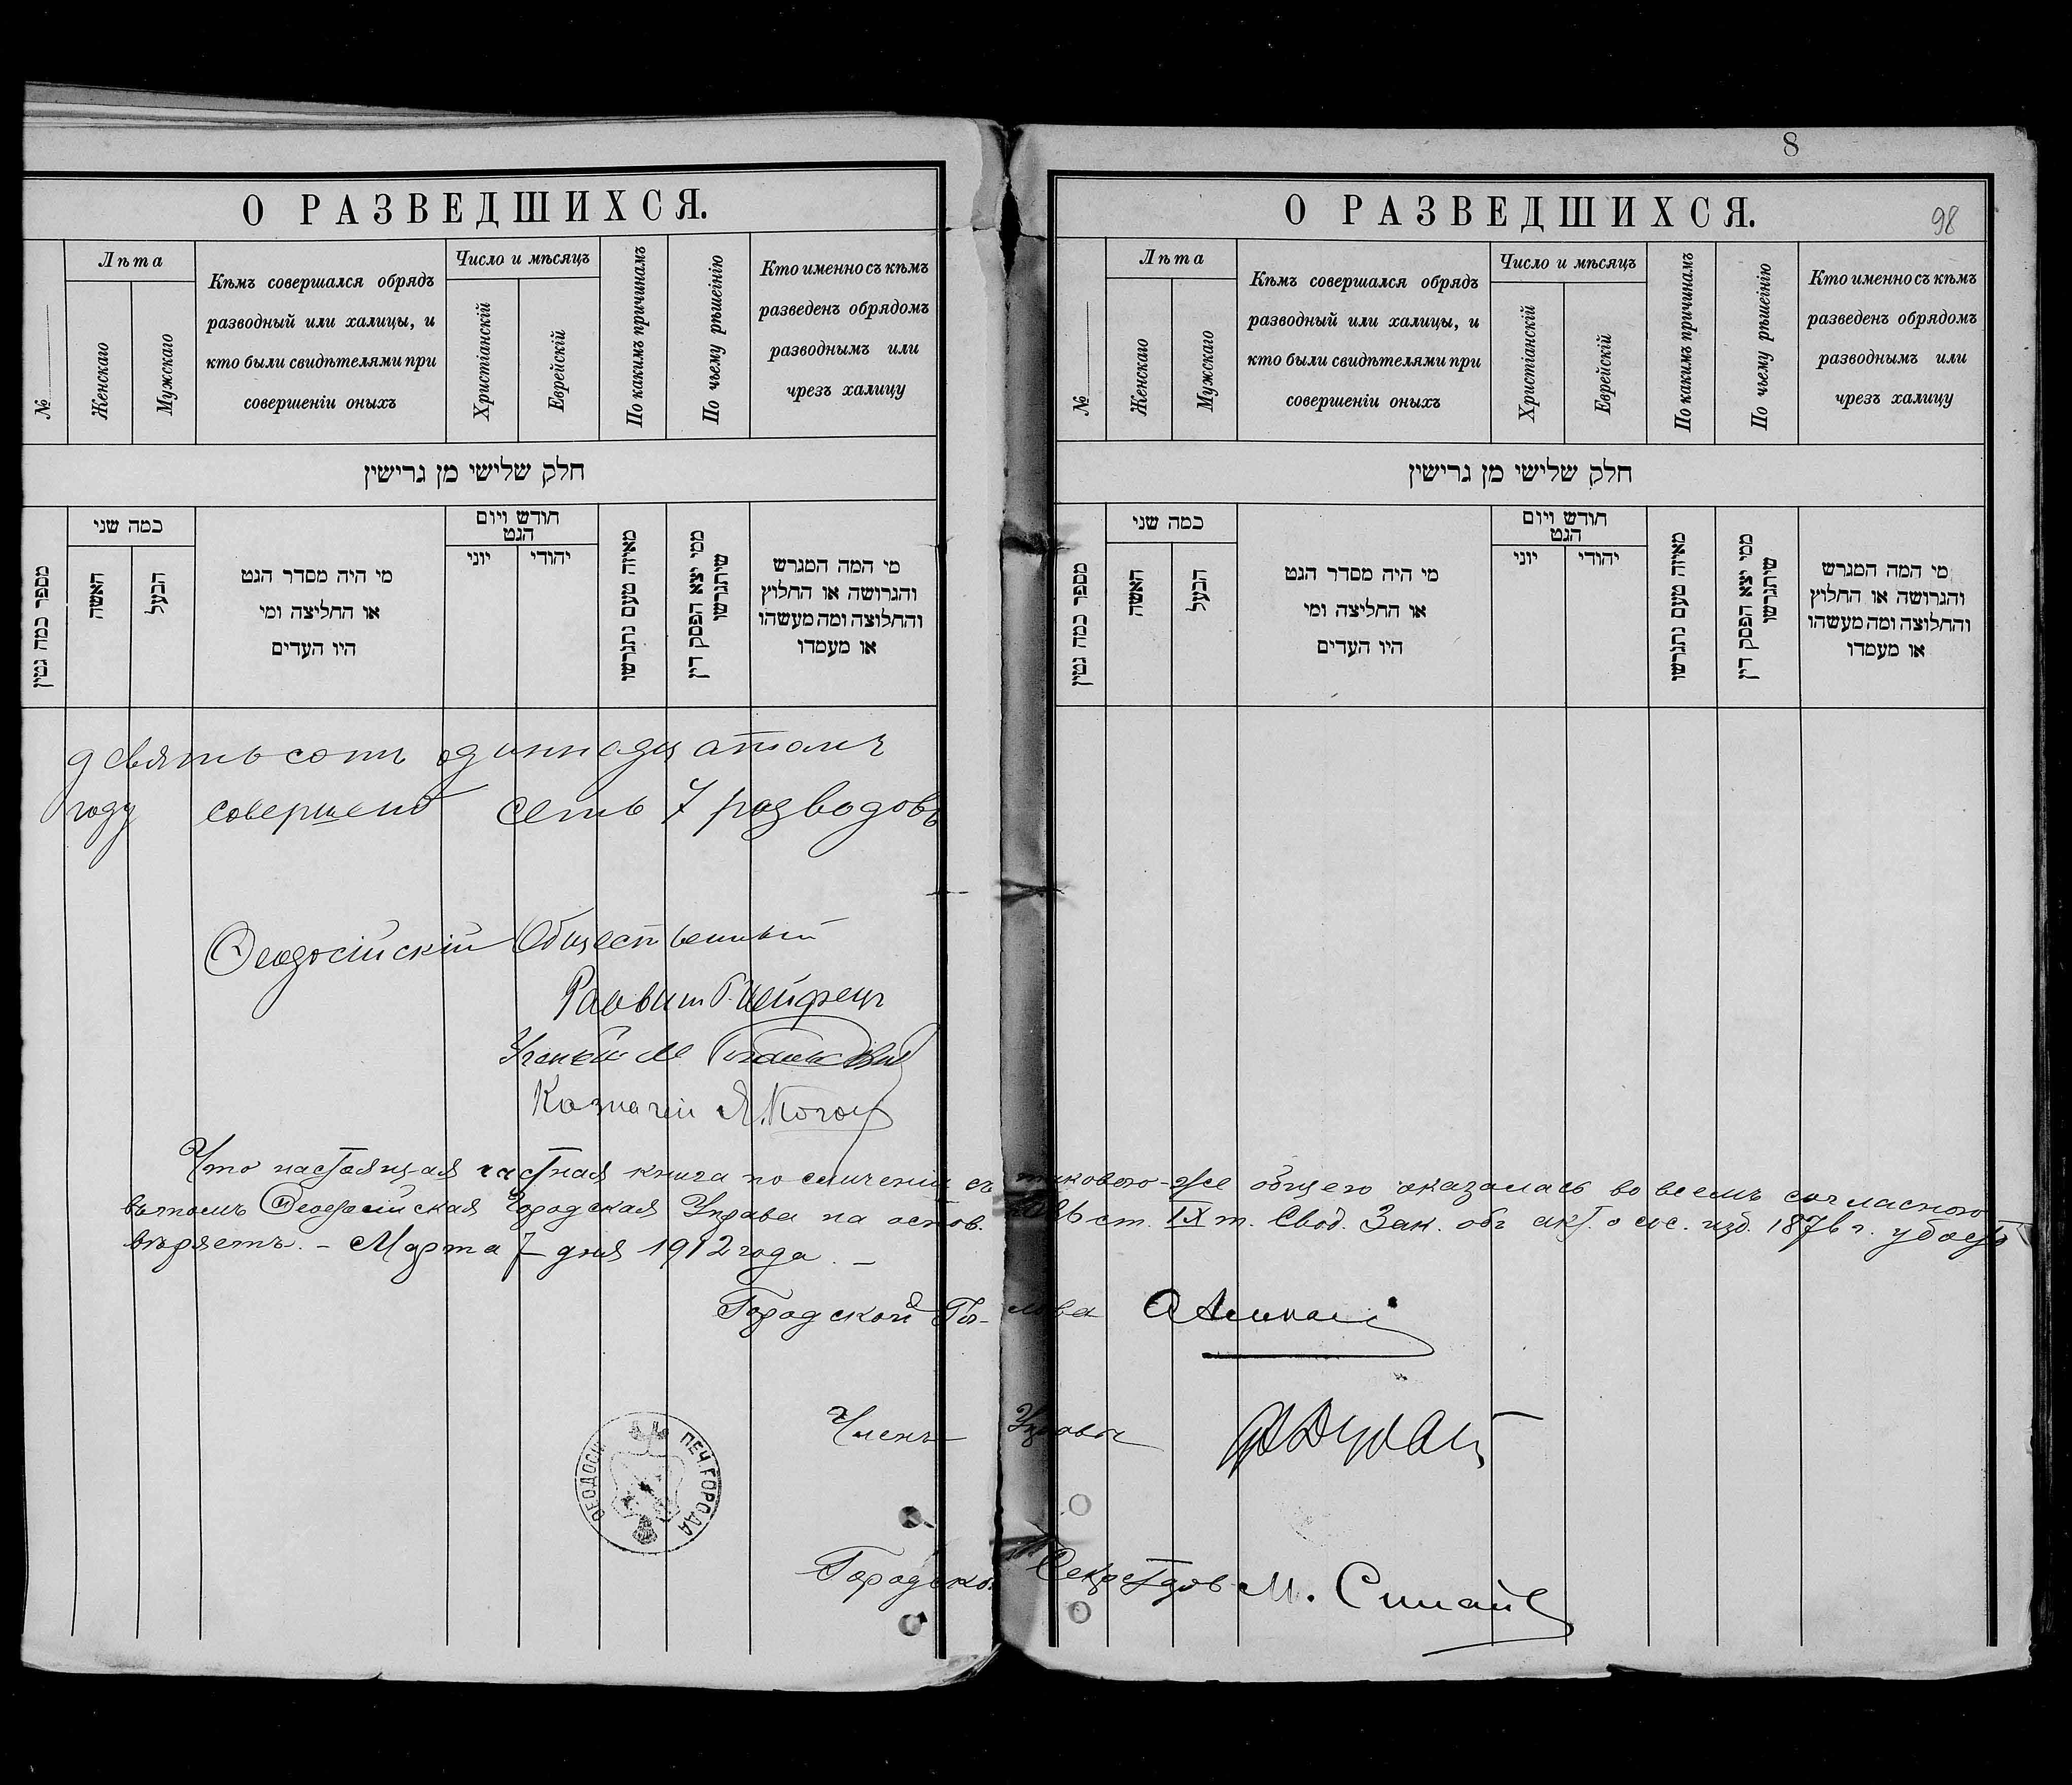 О РАЗВЕДШИХСЯ.
№
Лѣта
Женскаго
Мужскаго
Кѣмъ совершался обрядъ
разводный или халицы, и
кто были свидѣтелями при
совершеніи оныхъ
Число и мѣсяцъ
Христіанскій
Еврейскій
По какимъ причинамъ
По чьему рѣшеінію
Кто именно съ кѣмъ
разведенъ обрядомъ
разводнымъ или
чрезъ халицу
חלק שלישי מן גרישין
מספר כמה גטין
כמה שני
האשה
הבעל
מי היה מסדר הגט
או החליצה ומי
היו העדים
חודש ויום
הגט
יוני
יהודי
מאיזה טעם נתגרשו
ממי יצא הפסק דין
שיתגרשו
מי המה המגרש
והגרושה או החלוץ
והחלוצה ומה מעשהו
או מעמדו
девятьсотъ одиннадцатомъ
году совершено семь 7 разводовъ
Ѳеодосійскій Общественный
Раввинъ
Ученый М
Казначей Я. Коган
8
О РАЗВЕДШИХСЯ.
98
№
Лѣта
Женскаго
Мужскаго
Кѣмъ совершался обрядъ
разводный или халицы, и
кто были свидѣтелями при
совершеніи оныхъ
Число и мѣсяцъ
Христіанскій
Еврейскій
По какимъ причинамъ
По чьему рѣшеінію
Кто именно съ кѣмъ
разведенъ обрядомъ
разводнымъ или
чрезъ халицу
חלק שלישי מן גרישין
מספר כמה גטין
כמה שני
האשה
הבעל
מי היה מסדר הגט
או החליצה ומי
היו העדים
חודש ויום
הגט
יוני
יהודי
מאיזה טעם נתגרשו
ממי יצא הפסק דין
שיתגרשו
מי המה המגרש
והגרושה או החלוץ
והחלוצה ומה מעשהו
או מעמדו
Что настоящая частная книга по сличеніи съ таковою-же общею оказалась во всемъ согласною
въ томъ Ѳеодосійская Городская Управа на основ. ст. IX т. Свод. Зак. объ акт. о сос. изд. 1876 г. удосто
вѣряетъ. – Марта 7 дня 1912 года. –
Городской Голова
Членъ Управы
ПЕЧ. ГОРОДА ѲЕОДОСІИ
Городской Секретарь М.